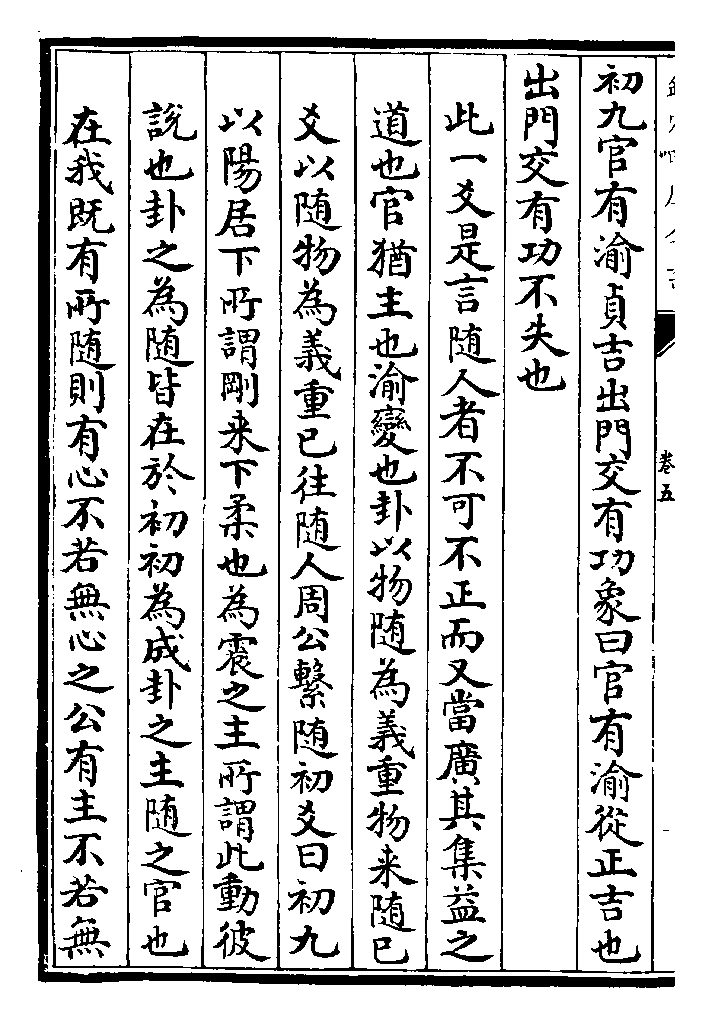 卷五
初九官有渝貞吉出門交有功象曰官有渝從正吉也
出門交有功不失也
此一爻是言随人者不可不正而又當廣其集益之
道也官猶主也渝變也卦以物随為義重物来随已
爻以随物為義重已往随人周公繫随初爻曰初九
以陽居下所謂剛来下柔也為震之主所謂此動彼
說也卦之為随皆在於初初為成卦之主随之官也
在我既有所随則有心不若無心之公有主不若無